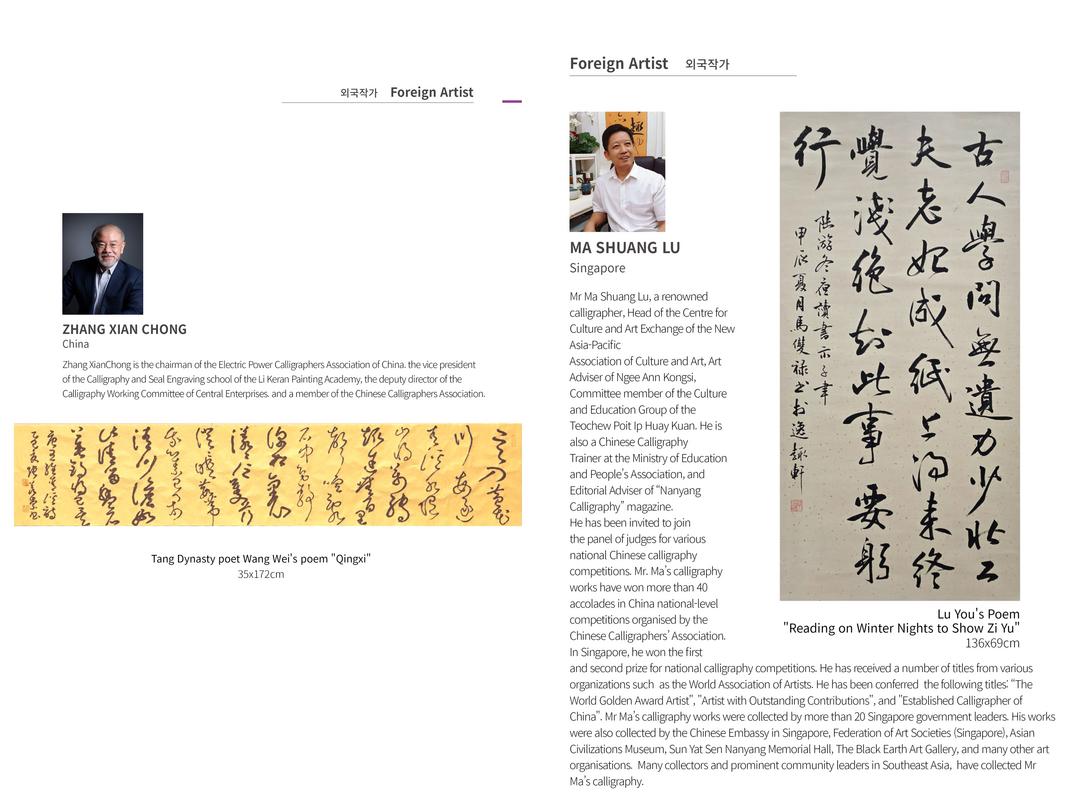 외국작가 Foreign Artist
ZHANG XIAN CHONG
China
Zhang XianChong is the chairman of the Electric Power Calligraphers Association of China. the vice president
of the Calligraphy and Seal Engraving school of the Li Keran Painting Academy, the deputy director of the
Calligraphy Working Committee of Central Enterprises. and a member of the Chinese Calligraphers Association.
Tang Dynasty poet Wang Wei's poem "Qingxi"
35x172cm
Foreign Artist 외국작가
MA SHUANG LU
Singapore
Mr Ma Shuang Lu, a renowned
calligrapher, Head of the Centre for
Culture and Art Exchange of the New
Asia-Pacific
Association of Culture and Art, Art
Adviser of Ngee Ann Kongsi,
Committee member of the Culture
and Education Group of the
Teochew Poit Ip Huay Kuan. He is
also a Chinese Calligraphy
Trainer at the Ministry of Education
and People's Association, and
Editorial Adviser of "Nanyang
Calligraphy" magazine.
He has been invited to join
the panel of judges for various
national Chinese calligraphy
competitions. Mr. Ma's calligraphy
works have won more than 40
accolades in China national-level
competitions organised by the
Chinese Calligraphers' Association.
In Singapore, he won the first
and second prize for national calligraphy competitions. He has received a number of titles from various
organizations such as the World Association of Artists. He has been conferred the following titles: "The
World Golden Award Artist", "Artist with Outstanding Contributions", and "Established Calligrapher of
China". Mr Ma's calligraphy works were collected by more than 20 Singapore government leaders. His works
were also collected by the Chinese Embassy in Singapore, Federation of Art Societies (Singapore), Asian
Civilizations Museum, Sun Yat Sen Nanyang Memorial Hall, The Black Earth Art Gallery, and many other art
organisations. Many collectors and prominent community leaders in Southeast Asia, have collected Mr
Ma's calligraphy.
古人學問無遺力少壯工
夫老始成紙上得來終
覺淺絕知此事要躬
行
陸游冬夜讀書示子聿
甲辰夏月馬雙祿書於逸趣軒
Lu You's Poem
"Reading on Winter Nights to Show Zi Yu"
136x69cm